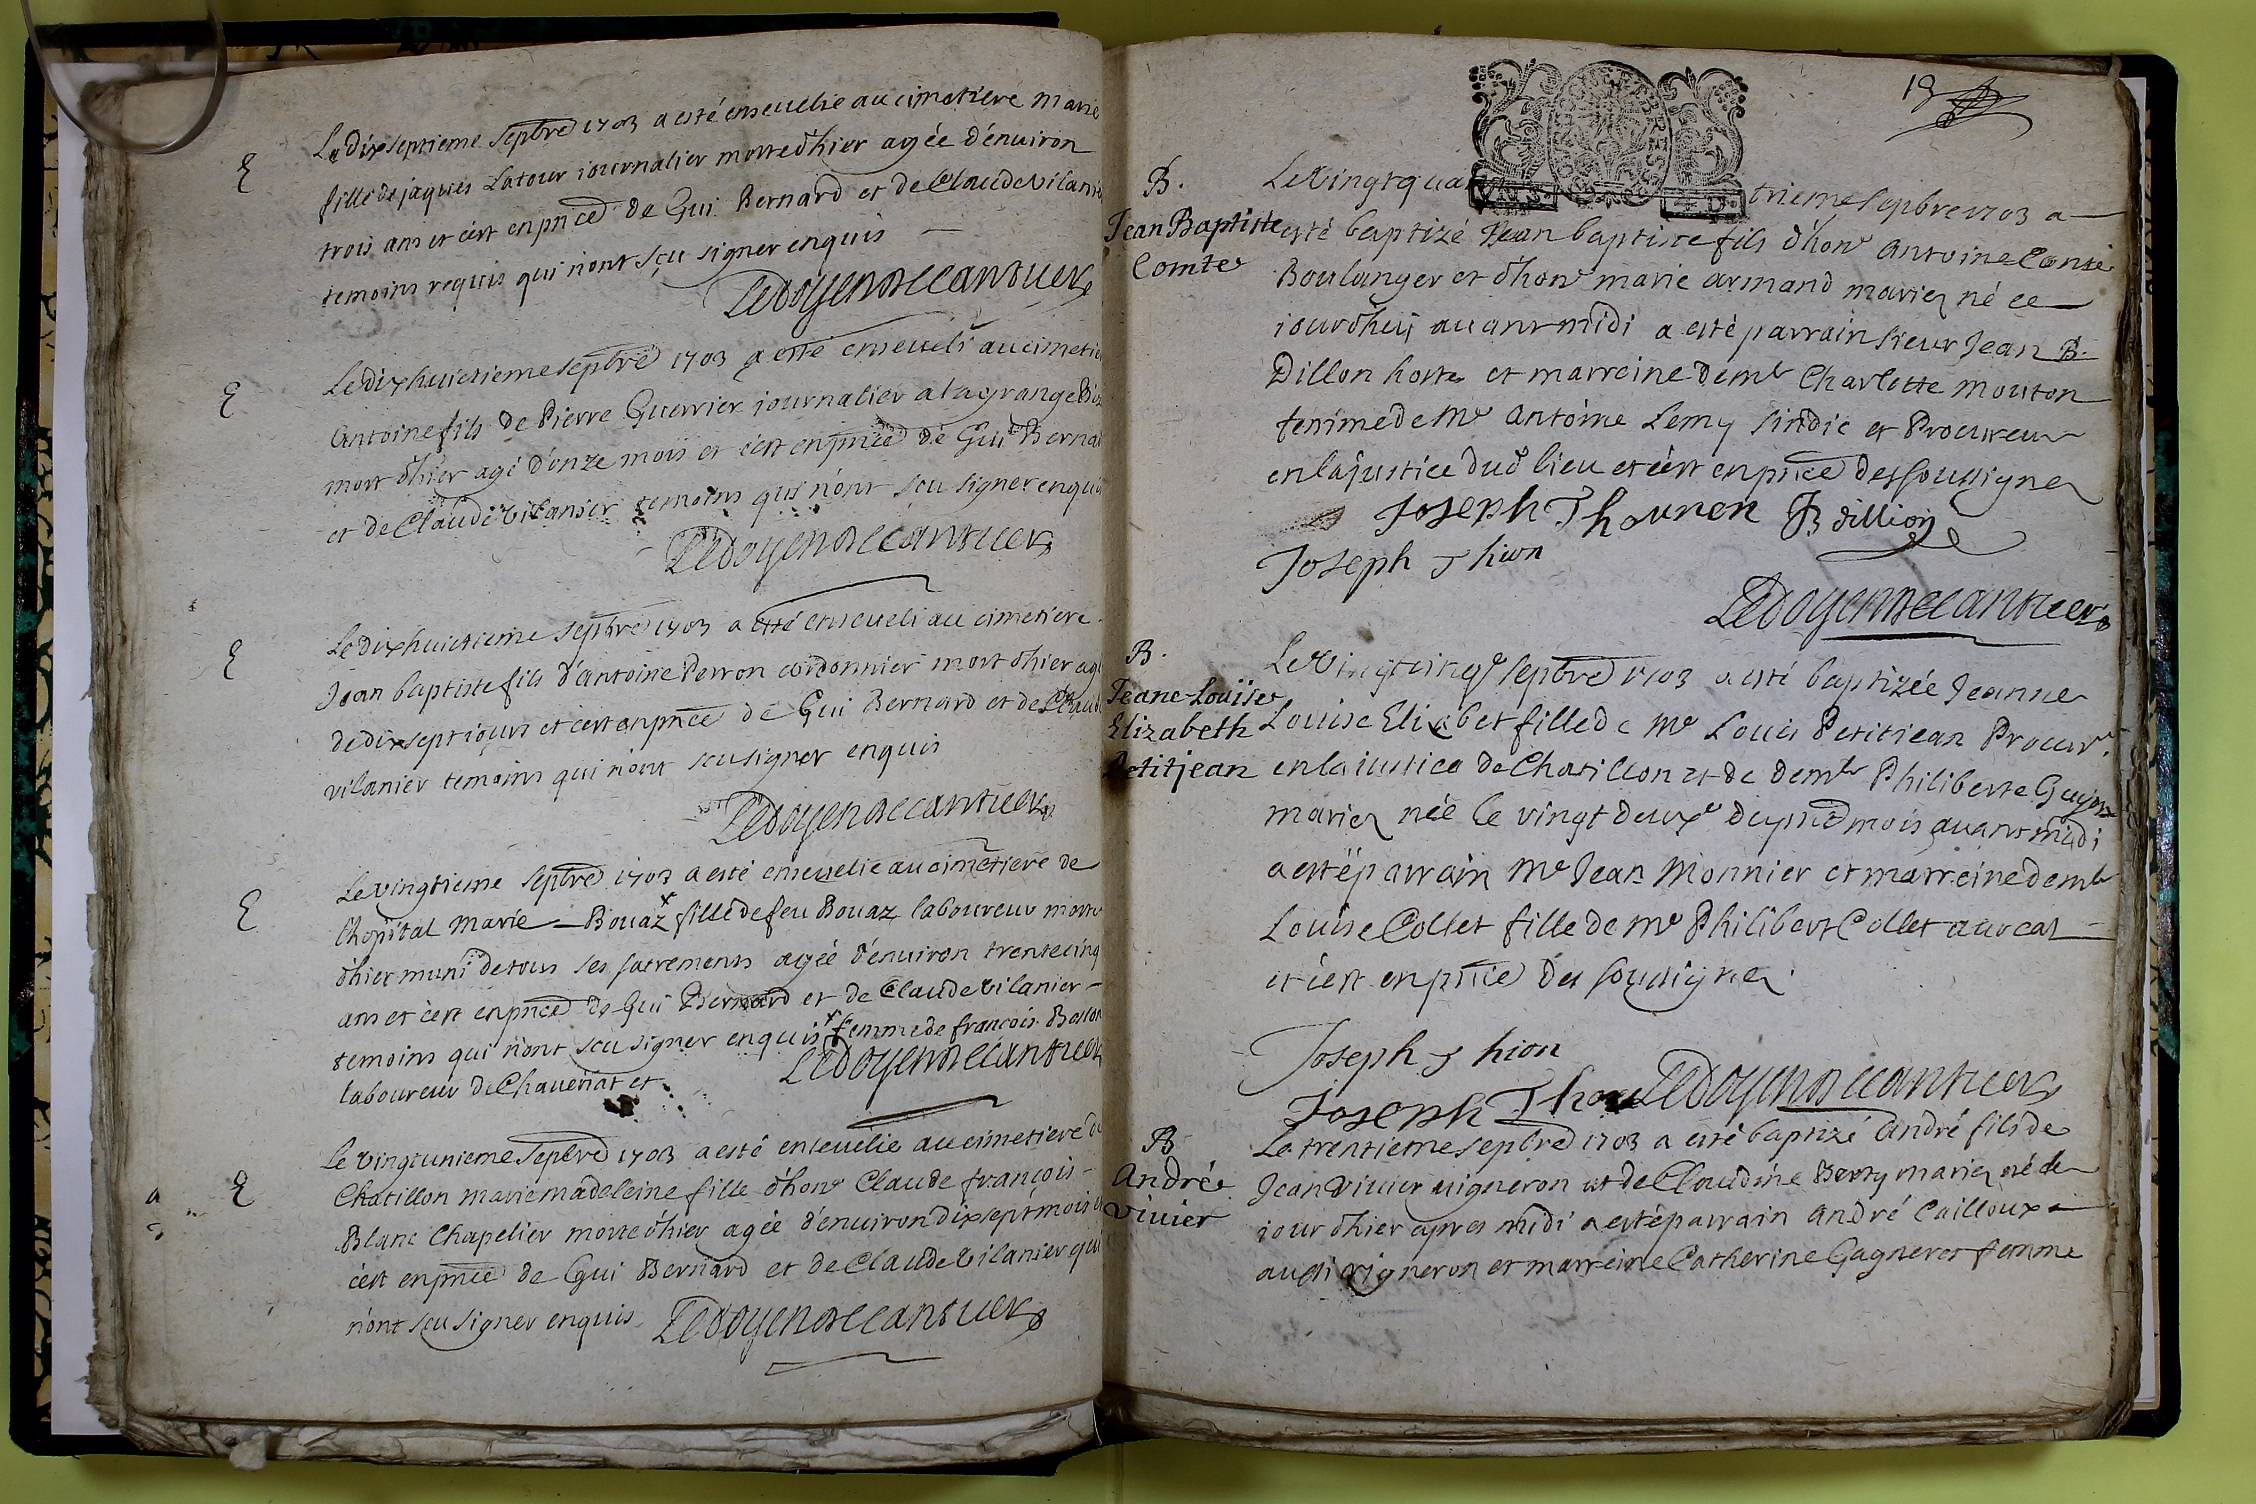 E
Le dix septieme sepbre 1703 a esté enseuelie au cimetiere marie
fille de jaques Latour iournalier morte d'hier agée d'enuiron
trois ans et c'est en pnce de Gui Bernard et de Claude Vilanier
temoins requis qui n'ont sçu signer enquis
Ledoyen
E
Le dix huictieme sepbre 1703 a esté enseueli au cimetie
Antoine fils de Pierre Guerrier journalier a la grange
mort d'hier agé d'onze mois et c'est en pnce de Gui Bernar
et de Claude Vilanier temoins qui n'ont sçu signer enquis
Ledoyen
E
Le dix huictieme sepbre 1703 a esté enseueli au cimetiere
Jean baptiste fils d'antoine Perron cordonnier mort d'hier agé
de dix sept iours et c'est en pnce de Gui Bernard et de Claude
vilanier temoins qui n'ont sceu signer enquis
Ledoyen
E
Le vingtieme sepbre 1703 a esté enseuelie au cimetiere de
l'hopital Marie Bouaz fille de feu Bouaz laboureur morte
d'hier muni de tous ses sacrements agée d'enuiron trente cinq
ans et c'est en pnce de Gui Bernard et de Claude vilanier
temoins qui n'ont sceu signer enquis femme de francois
laboureur de Chaueriat et
Ledoyen
a
E
Le vingt unieme sepbre 1703 a esté enseuelie au cimetiere de
Chatillon marie madeleine fille d'hon Claude françois
Blanc Chapelier morte d'hier agée d'enuiron dix sept mois
c'est en pnce de Gui Bernard et de Claude Vilanier qui
n'ont sceu signer enquis Ledoyen
19
B.
Jean Baptiste
Comte
Le Vingt quatrieme sepbre 1703 a
esté baptizé Jean baptiste fils d'hon Antoine Conte
Boulanger et d'hon marie armand mariez né ce
iourd'huy auant midi a esté parrain sieur Jean B.
Dillon hoste et marreine dem Charlotte mouton
femme de Me Antoine Lemy sindic et Procureur
en la justice dud lieu et c'est en pnce des soussignez
Joseph Thounen JB dillion
Joseph Thion
Ledoyen
B.
Jeane Louïse
Elizabeth
Petitjean
Le Vingt cinqe sepbre 1703 a esté baptizée Jeanne
Louise Elizabet fille de Me Louis Petitiean Procurr
en la iustice de Chatillon et de demle Philiberte Guyon
mariez née le vingt deuxe du pnt mois auant midi
a esté parrain Me Jean Monnier et marreine demle
Louise Collet fille de Me Philibert Collet aduocat
et c'est en pnce des soussignez
Joseph Thion
Joseph Thou Ledoyen
B
André
Vivier
Le trentieme sepbre 1703 a esté baptizé André fils de
Jean Vivier vigneron et de Claudine mariez né le
iour d'hier apres midi a esté parrain André Cailloux
aussi vigneron et marreine Catherine Gagneres femme